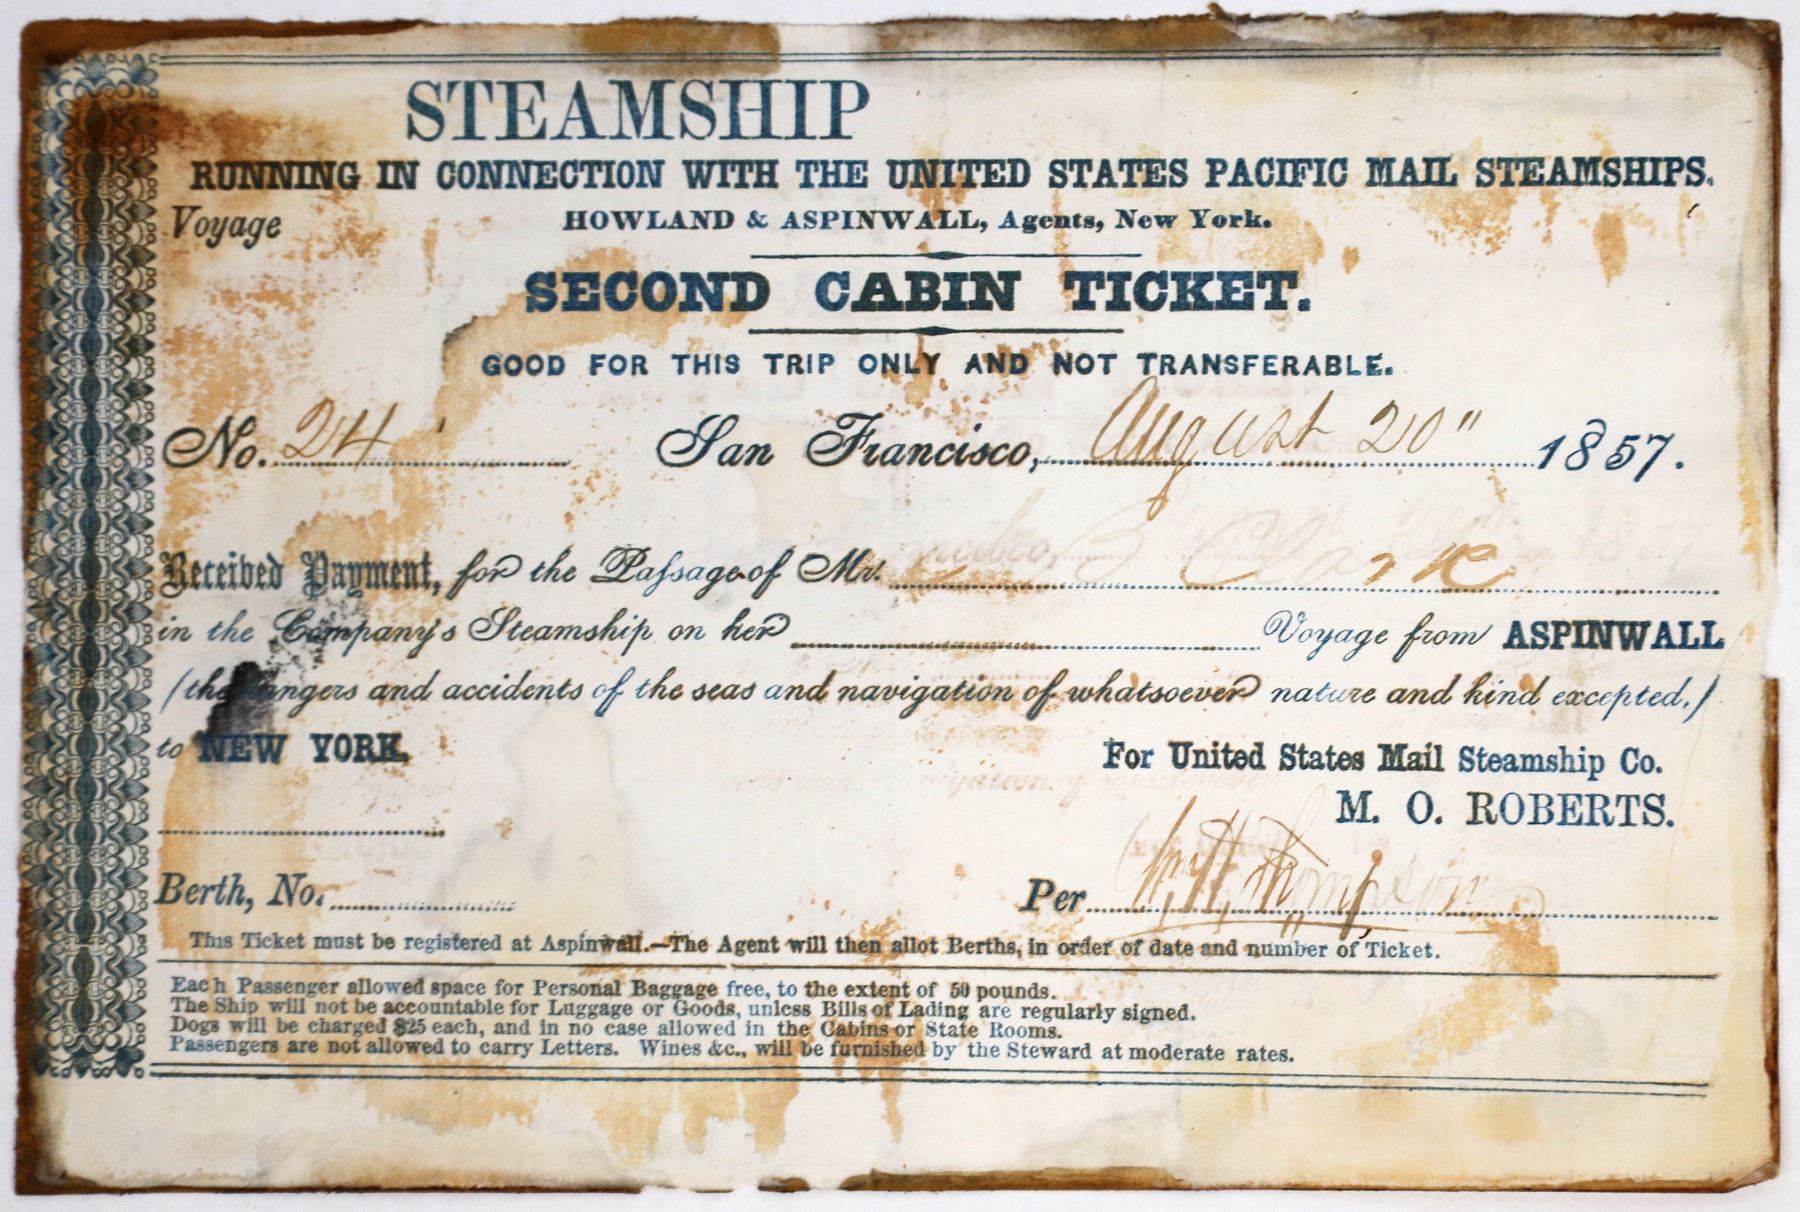 STEAMSHIP
RUNNING IN CONNECTION WITH THE UNITED STATES PACIFIC MAIL STEAMSHIPS.
Voyage HOWLAND & ASPINWALL, Agents, New York.
SECOND CABIN TICKET.
GOOD FOR THIS TRIP ONLY AND NOT TRANSFERABLE.
No. 24 San Francisco, August 20" 1857.
Received Payment, for the Passage of Mr.
in the Company's Steamship on her Voyage from ASPINWALL
(the dangers and accidents of the seas and navigation of whatsoever nature and kind excepted,)
to NEW YORK,
For United States Mail Steamship Co.
M. O. ROBERTS.
Berth, No. Per Wm H. Thompson
This Ticket must be registered at Aspinwall.—The Agent will then allot Berths, in order of date and number of Ticket.
Each Passenger allowed space for Personal Baggage free, to the extent of 50 pounds.
The Ship will not be accountable for Luggage or Goods, unless Bills of Lading are regularly signed.
Dogs will be charged $25 each, and in no case allowed in the Cabins or State Rooms.
Passengers are not allowed to carry Letters. Wines &c., will be furnished by the Steward at moderate rates.